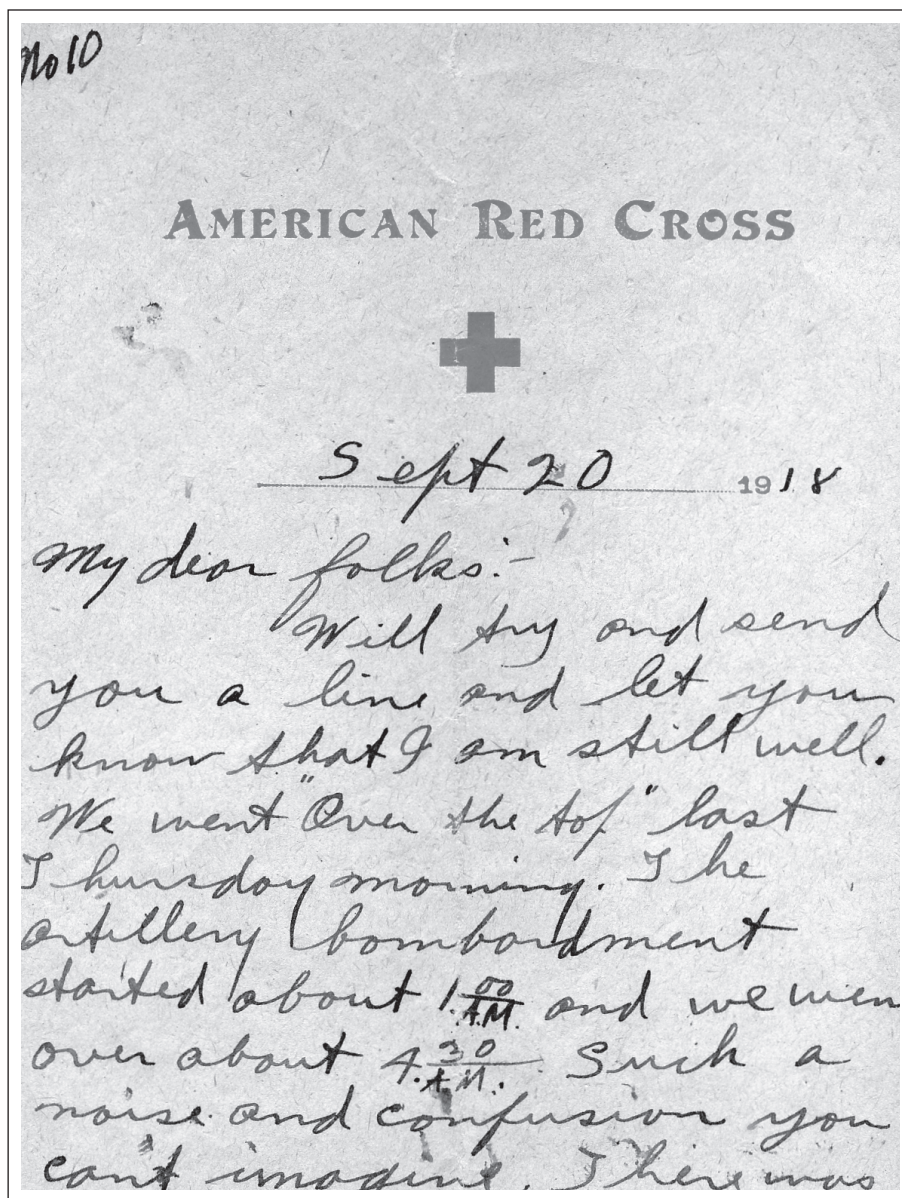 No 10
AMERICAN RED CROSS
Sept 20 1918
My dear folks:-
Will try and send
you a line and let you
know that I am still well.
We went "Over the top" last
Thursday morning. The
artillery bombardment
started about 1.00 A.M. and we wen
over about 4.30 A.M. Such a
noise and confusion you
cant imagine. There was